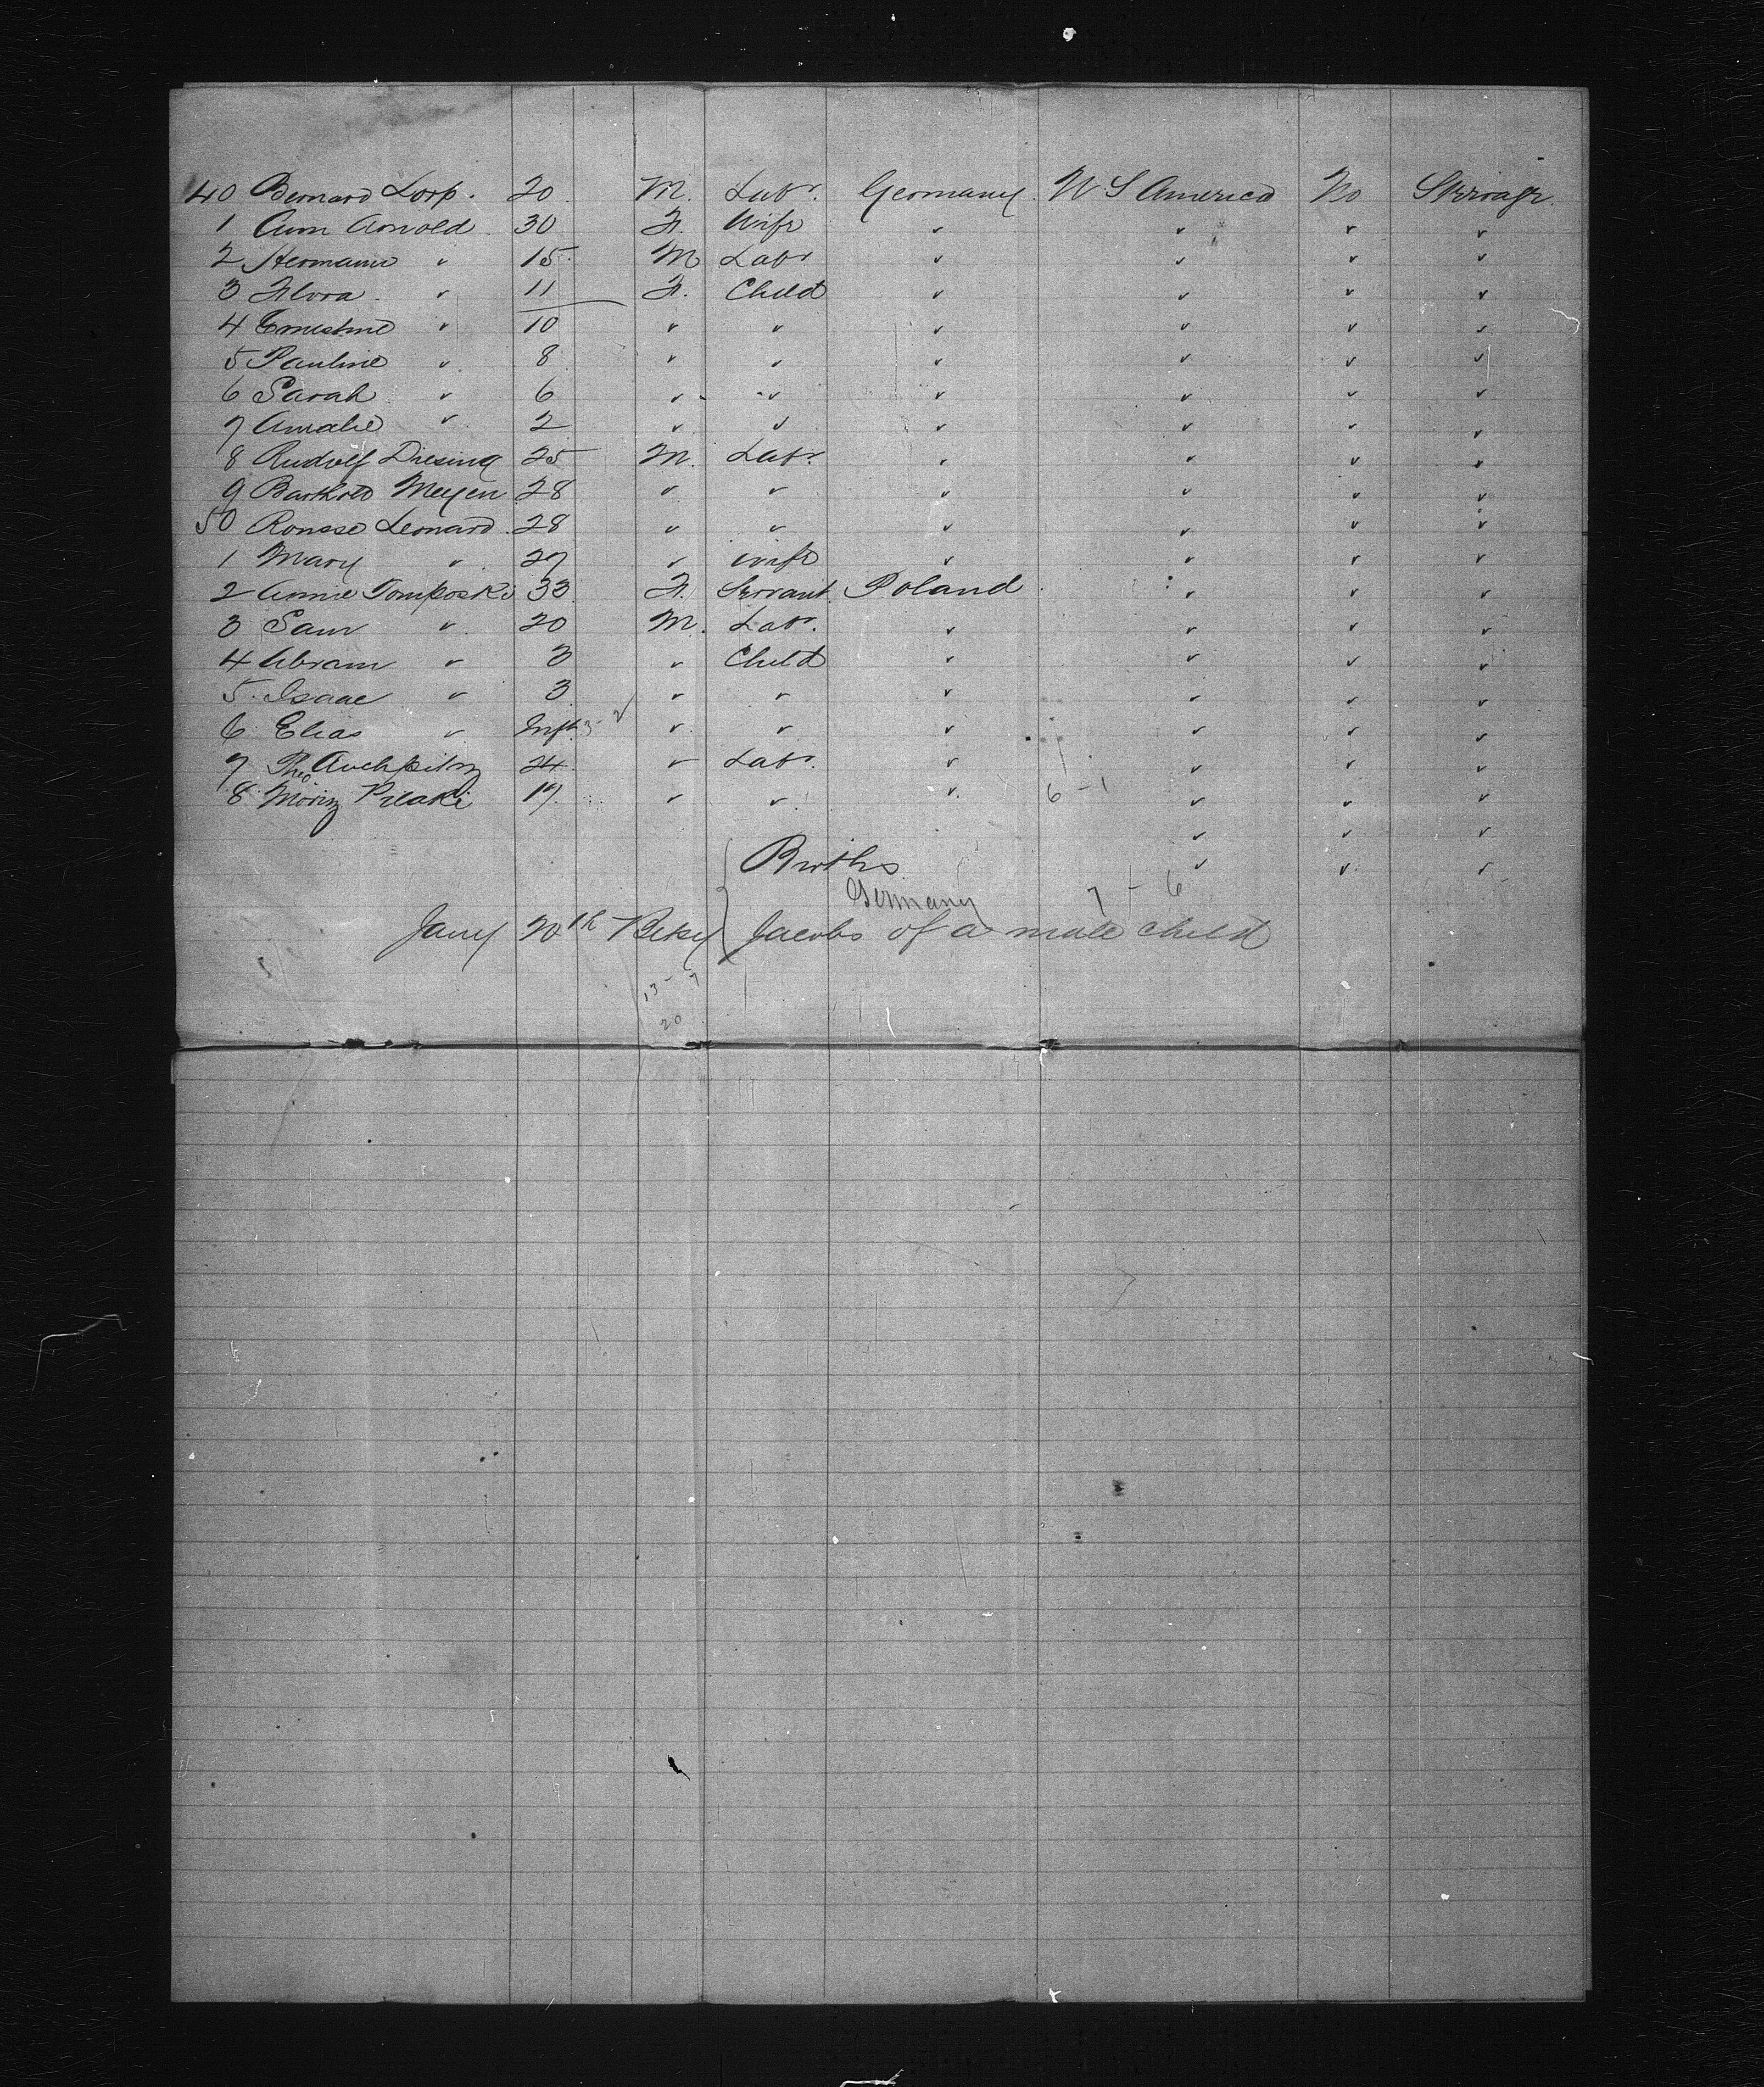 40 Bernard Lorp. 20 M. Labr. Germany. U S America No Steerage.
1 Ann Arnold 30 F. Wife " " " "
2 Hermann " 15 M Labr " " " "
3 Flora " 11 F. Child " " " "
4 Ernestine " 10 " " " " " "
5 Pauline " 8 " " " " " "
6 Sarah " 6 " " " " " "
7 Amalie " 2 " " " " " "
8 Rudolf Diesing 25 M. Labr. " " " "
9 Barthold Meyen 28 " " " " " "
50 Leonard 28 " " " " " "
1 Mary " 27 " wife " " " "
2 Annie Tomposki 33 F. Servant Poland " " "
3 Sam " 20 M. Labr. " " " "
4 Abram " 3 " Child " " " "
5 Isaac " 3 " " " " " "
6 Elias " Inft. " " " " " "
7 Theo 24 " Labr. " " " "
8 Moritz Pilaki 19 " " " 6 - 1 " " "
" " "
Births " " "
Germany 7 - 6
Jany 20th Betsy Jacobs of a male child
13 - 7
20